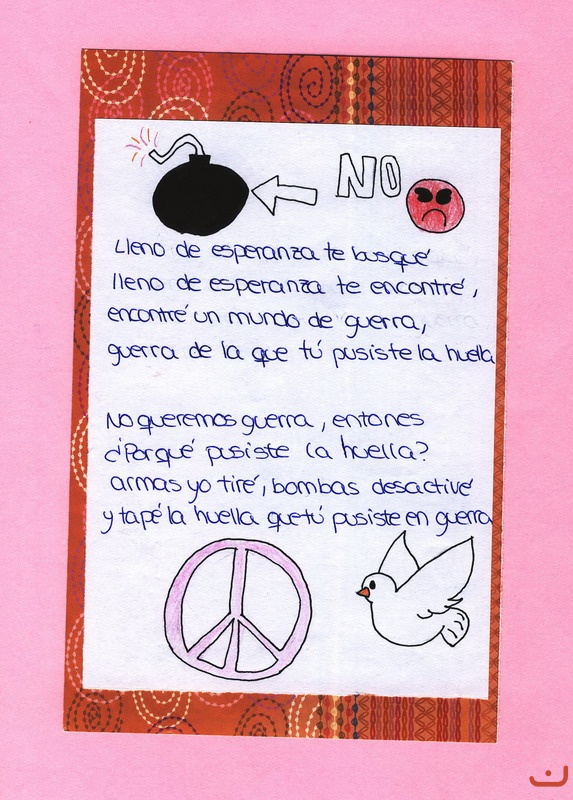 NO
Lleno de esperanza te busqué
lleno de esperanza te encontré,
encontré un mundo de guerra,
guerra de la que tú pusiste la huella
No queremos guerra, entones
¿Porqué pusiste la huella?
armas yo tiré, bombas desactivé
y tapé la huella que tú pusiste en guerra